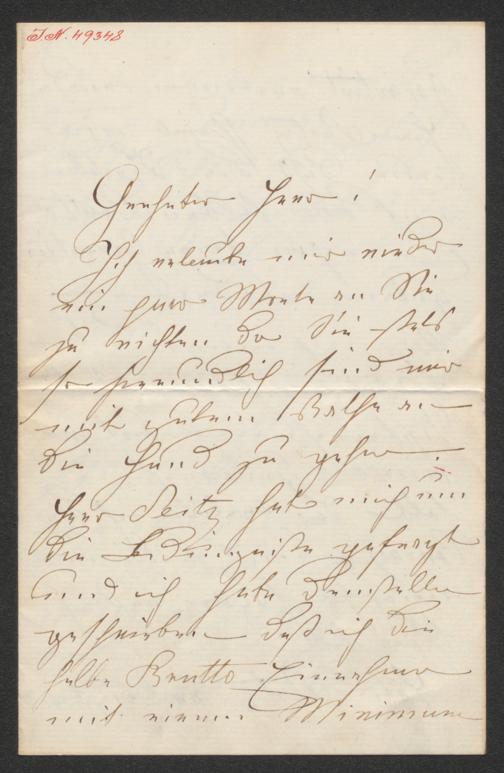 J.N. 49348
Geehrter Herr!
Ich erlaube mir wieder
ein paar Worte an Sie
zu richten da Sie stets
so freundlich sind mir
mit gutem Rathe an
die Hand zu gehen.
Herr Seitz hat mich um
die Bedingnisse gefragt
und ich habe demselben
geschrieben daß ich die
halbe Brutto Einnahme
mit einem Minimum